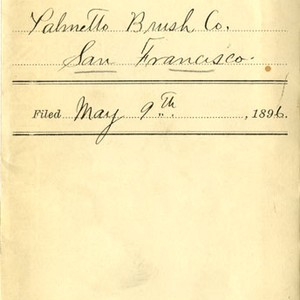 Palmetto Brush Co.
San Francisco.
Filed May 9th, 1896.